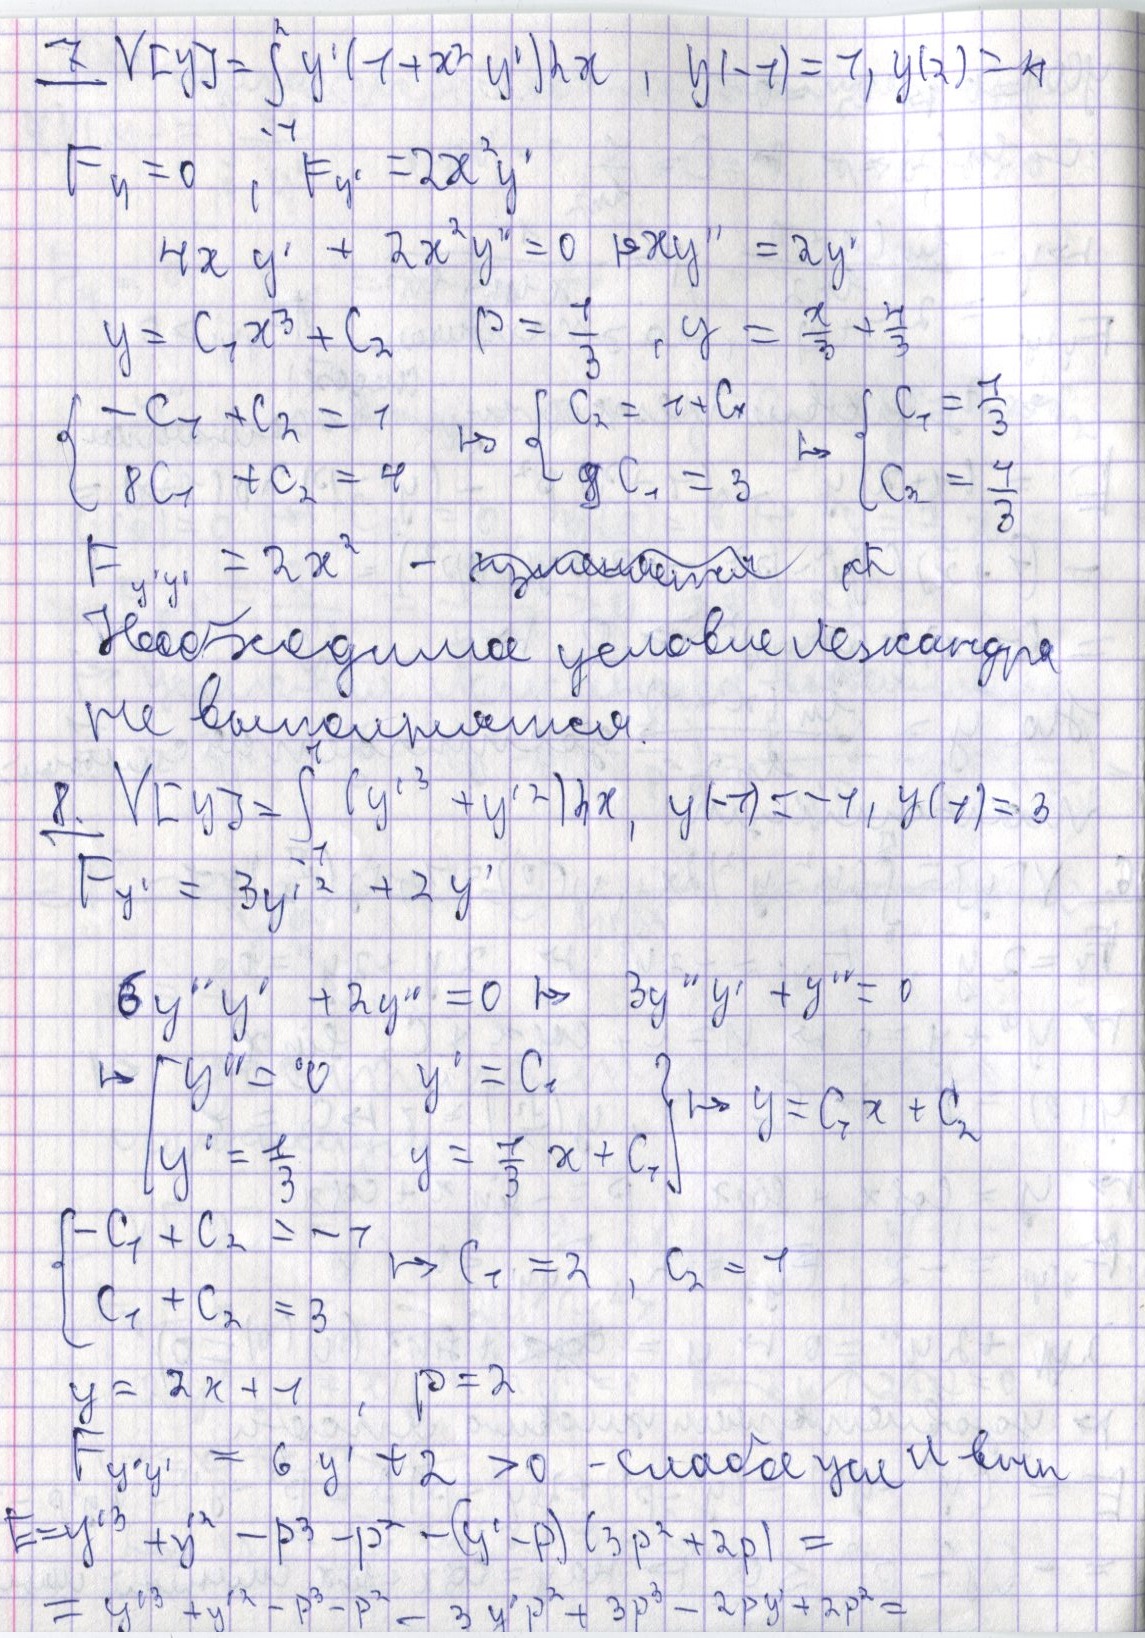 7. V[y] = ∫_{-1}^{2} y'(1+x² y')dx , y(-1) = 1, y(2) = 4
F_y = 0 , F_{y'} = 2x²y'
4x y' + 2x²y'' = 0 ↦ xy'' = 2y'
y = C₁x³ + C₂ P = 1/3 , y = x/3 + 4/3
{ -C₁ + C₂ = 1 ; 8C₁ + C₂ = 4 ↦ { C₂ = 1+C₁ ; 9C₁ = 3 ↦ { C₁ = 1/3 ; C₂ = 4/3
F_{y'y'} = 2x² -
Необходимое условие Лежандра
не выполняется.
8. V[y] = ∫_{-1}^{1} (y'³ + y'²)dx, y(-1) = -1, y(1) = 3
F_{y'} = 3y'² + 2y'
6y''y' + 2y'' = 0 ↦ 3y''y' + y'' = 0
↦ [ y'' = 0 y' = C₁ ; y' = 1/3 y = 1/3 x + C₁ } ↦ y = C₁x + C₂
{ -C₁ + C₂ = -1 ; C₁ + C₂ = 3 ↦ C₁ = 2 , C₂ = 1
y = 2x+1 , p = 2
F_{y'y'} = 6y' + 2 > 0 - слабое усл вып
E = y'³ + y'² - p³ - p² - (y'-p)(3p²+2p) =
= y'³ + y'² - p³ - p² - 3y'p² + 3p³ - 2py' + 2p² =